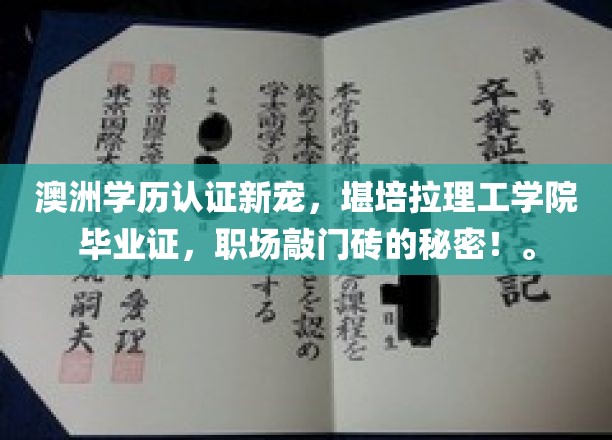 澳洲学历认证新宠，堪培拉理工学院
毕业证，职场敲门砖的秘密！。
第 号
卒業証 記
日生
本学商学部 の課程を
修めて本学 とを認め
学士(商学)の する
平成
東京国際大学商 愛理
東京国際大 嗣夫